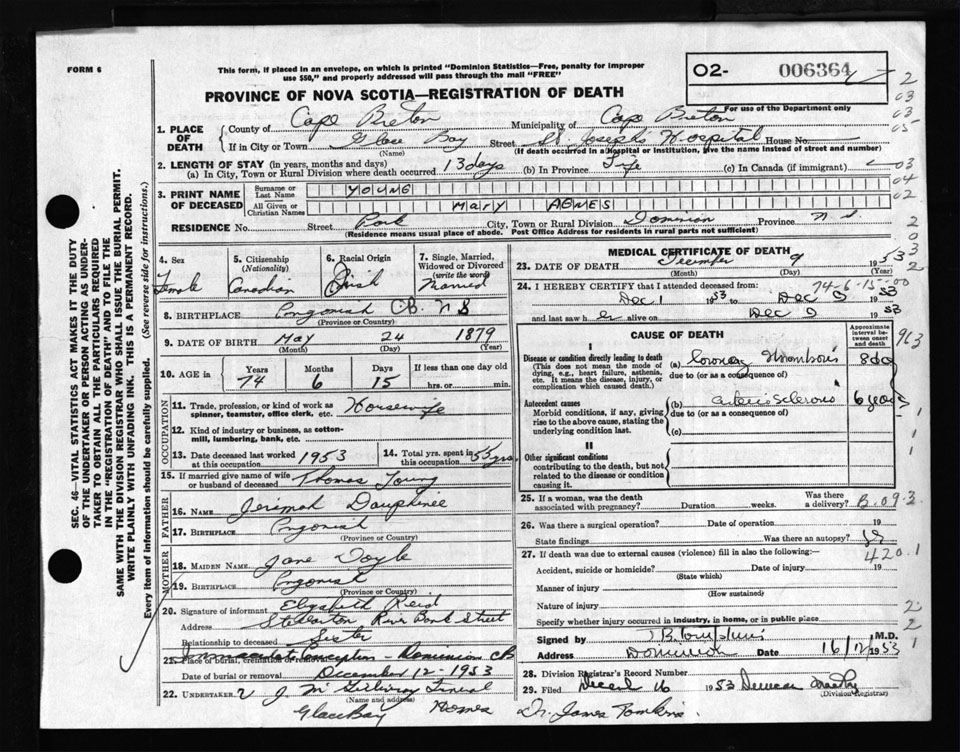 FORM 6
This form, if placed in an envelope, on which is printed "Dominion Statistics—Free, penalty for improper
use $50," and properly addressed will pass through the mail "FREE"
02- 006364
PROVINCE OF NOVA SCOTIA—REGISTRATION OF DEATH
For use of the Department only
1. PLACE OF DEATH { County of Cape Breton Municipality of Cape Breton
If in City or Town Glace Bay Street St. Joseph's Hospital House No.
(Name) (If death occurred in a hospital or institution, give the name instead of street and number)
2. LENGTH OF STAY (in years, months and days)
(a) In City, Town or Rural Division where death occurred 13 days (b) In Province Life (c) In Canada (if immigrant)
3. PRINT NAME OF DECEASED { Surname or Last Name YOUNG
All Given or Christian Names MARY AGNES
RESIDENCE No. Street Park City, Town or Rural Division Dominion Province N S
(Residence means usual place of abode. Post Office Address for residents in rural parts not sufficient)
4. Sex Female
5. Citizenship (Nationality) Canadian
6. Racial Origin Irish
7. Single, Married, Widowed or Divorced (write the word) Married
8. BIRTHPLACE Ingonish CB. N S
(Province or Country)
9. DATE OF BIRTH May 24 1879
(Month) (Day) (Year)
10. AGE in { Years 74 Months 6 Days 15 If less than one day old
hrs. or min.
OCCUPATION
11. Trade, profession, or kind of work as spinner, teamster, office clerk, etc. Housewife
12. Kind of industry or business, as cotton-mill, lumbering, bank, etc.
13. Date deceased last worked at this occupation 1953
14. Total yrs. spent in this occupation 55 yrs
15. If married give name of wife or husband of deceased Thomas Young
FATHER
16. Name Jerimah Dauphinee
17. Birthplace Ingonish
MOTHER
18. MAIDEN NAME Jane Doyle
19. BIRTHPLACE Ingonish
(Province or Country)
20. Signature of informant Elizabeth Reid
Address Stellarton River Bank Street
Relationship to deceased Sister
21. Place of burial, cremation or removal Immaculate Conception - Dominion CB
Date of burial or removal December 12 - 1953
22. UNDERTAKER J. McGillivray Funeral
(Name and address)
Glace Bay Homes
MEDICAL CERTIFICATE OF DEATH
23. DATE OF DEATH December 9 1953
(Month) (Day) (Year)
24. I HEREBY CERTIFY that I attended deceased from: 74-6-15-00
Dec 1 1953 to Dec 9 1953
and last saw her alive on Dec 9 1953
CAUSE OF DEATH
Approximate interval between onset and death
I
Disease or condition directly leading to death
(This does not mean the mode of dying, e.g., heart failure, asthenia, etc. It means the disease, injury, or complication which caused death.)
(a) Coronary Thrombosis 8 day
due to (or as a consequence of)
Antecedent causes
Morbid conditions, if any, giving rise to the above cause, stating the underlying condition last.
(b) arteriosclerosis 6 years
due to (or as a consequence of)
(c)
II
Other significant conditions
contributing to the death, but not related to the disease or condition causing it.
25. If a woman, was the death associated with pregnancy? Duration weeks. Was there a delivery?
26. Was there a surgical operation? Date of operation 19
State findings Was there an autopsy?
27. If death was due to external causes (violence) fill in also the following:—
Accident, suicide or homicide? Date of injury 19
(State which)
Manner of injury
(How sustained)
Nature of injury
Specify whether injury occurred in industry, in home, or in public place
Signed by J B Tompkins M.D.
Address Dominion Date 16/12/1953
28. Division Registrar's Record Number
29. Filed Decem 16 1953
(Division Registrar)
Dr. James Tomkins
963
B.09.3
420.1
SEC. 46—VITAL STATISTICS ACT MAKES IT THE DUTY
OF THE UNDERTAKER OR PERSON ACTING AS UNDER-
TAKER TO OBTAIN ALL THE PARTICULARS REQUIRED
IN THE "REGISTRATION OF DEATH" AND TO FILE THE
SAME WITH THE DIVISION REGISTRAR WHO SHALL ISSUE THE BURIAL PERMIT.
WRITE PLAINLY WITH UNFADING INK. THIS IS A PERMANENT RECORD.
Every item of information should be carefully supplied. (See reverse side for instructions.)